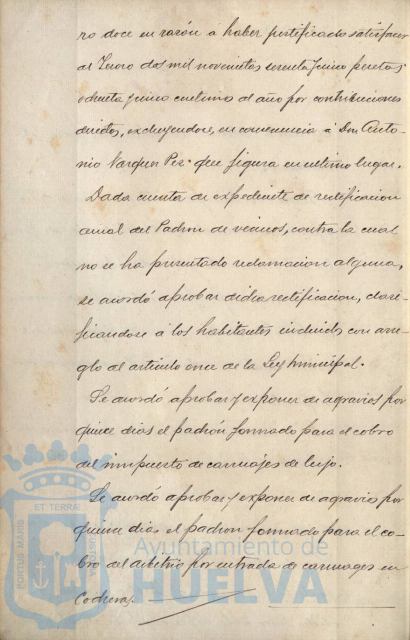 ro doce en razón á haber justificado satisfacer
al Tesoro dos mil novecientas setenta y cinco pesetas y
ochenta y cinco centimos al año por contribuciones
directas, excluyendose, en consecuencia á Don Anto-
nio Vazquez Pez. que figura en ultimo lugar.
Dada cuenta de expediente de rectificacion
anual del Padron de vecinos, contra la cual
no se ha presentado reclamacion alguna,
se acordó aprobar dicha rectificacion, clasi-
ficandose á los habitantes incluidos con arre-
glo al articulo once de la Ley Municipal.
Se acordó aprobar y exponer de agravios por
quince dias el padrón formado para el cobro
del impuesto de carruajes de lujo.
Se acordó aprobar y exponer de agravios por
quince dias el padron formado para el co-
bro del arbitrio por entrada de carruages en
Cocheras.
PORTUS MARIS ET TERRAE CUSTODIA
Ayuntamiento de
HUELVA